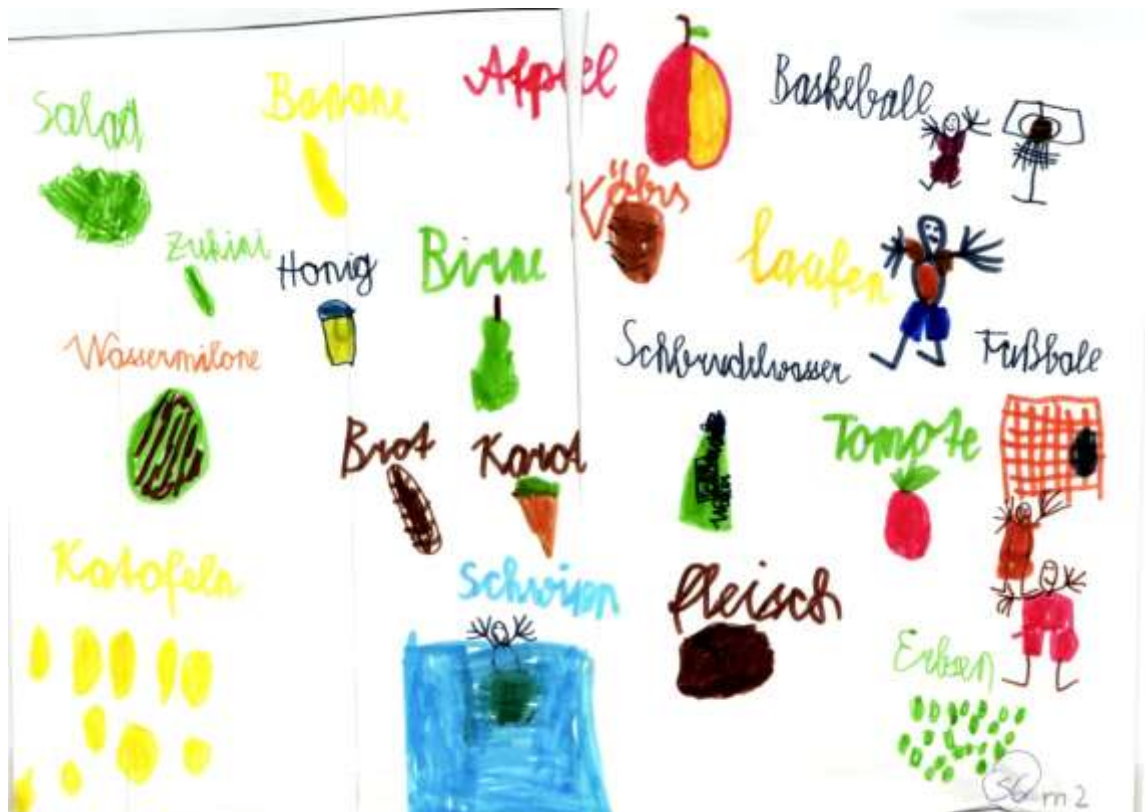 Salad
Banane
Appel
Baskeball
Köbis
Zukini
Honig
Birne
laufen
Wassermilone
Schbrudelwasser
Fußball
Brot
Karot
Tomate
Katofeln
Schwimn
fleisch
Erbsen
36 m 2